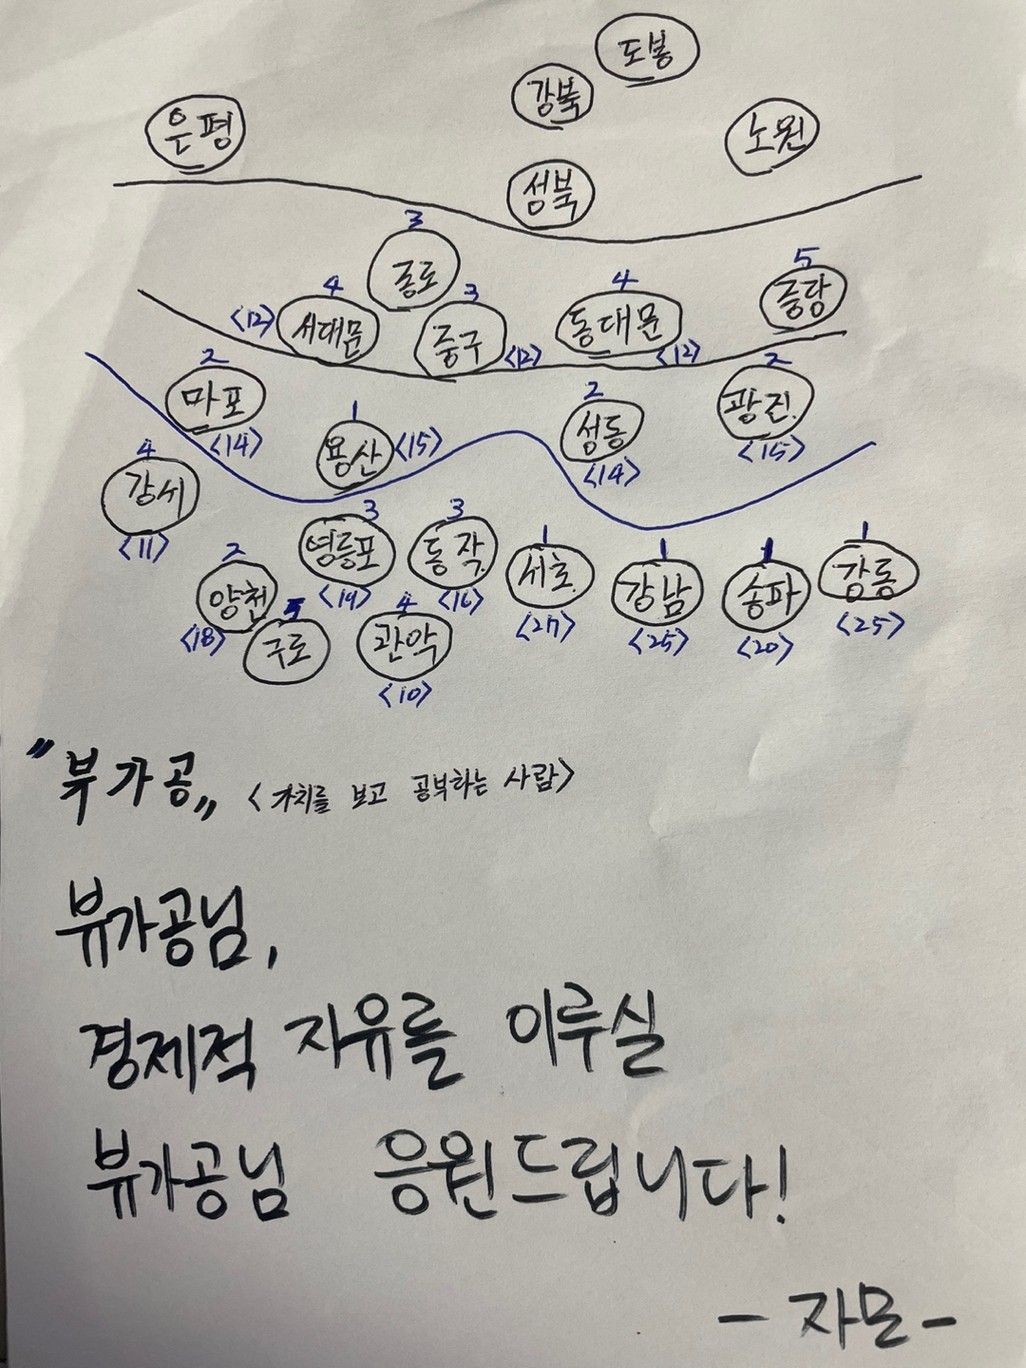 도봉
강북
은평
노원
성북
3
종로
5
중랑
4
<12> 서대문
3
중구 <12>
4
동대문 <12>
2
마포
<14>
1
용산 <15>
2
성동
<14>
2
광진
<15>
4
강서
<11>
2
양천
<18>
5
구로
3
영등포
<19>
3
동작
<16>
4
관악
<10>
1
서초
<27>
1
강남
<25>
1
송파
<20>
1
강동
<25>
"부가공" <가치를 보고 공부하는 사람>
뷰가공님,
경제적 자유를 이루실
뷰가공님 응원드립니다!
- 자몬 -